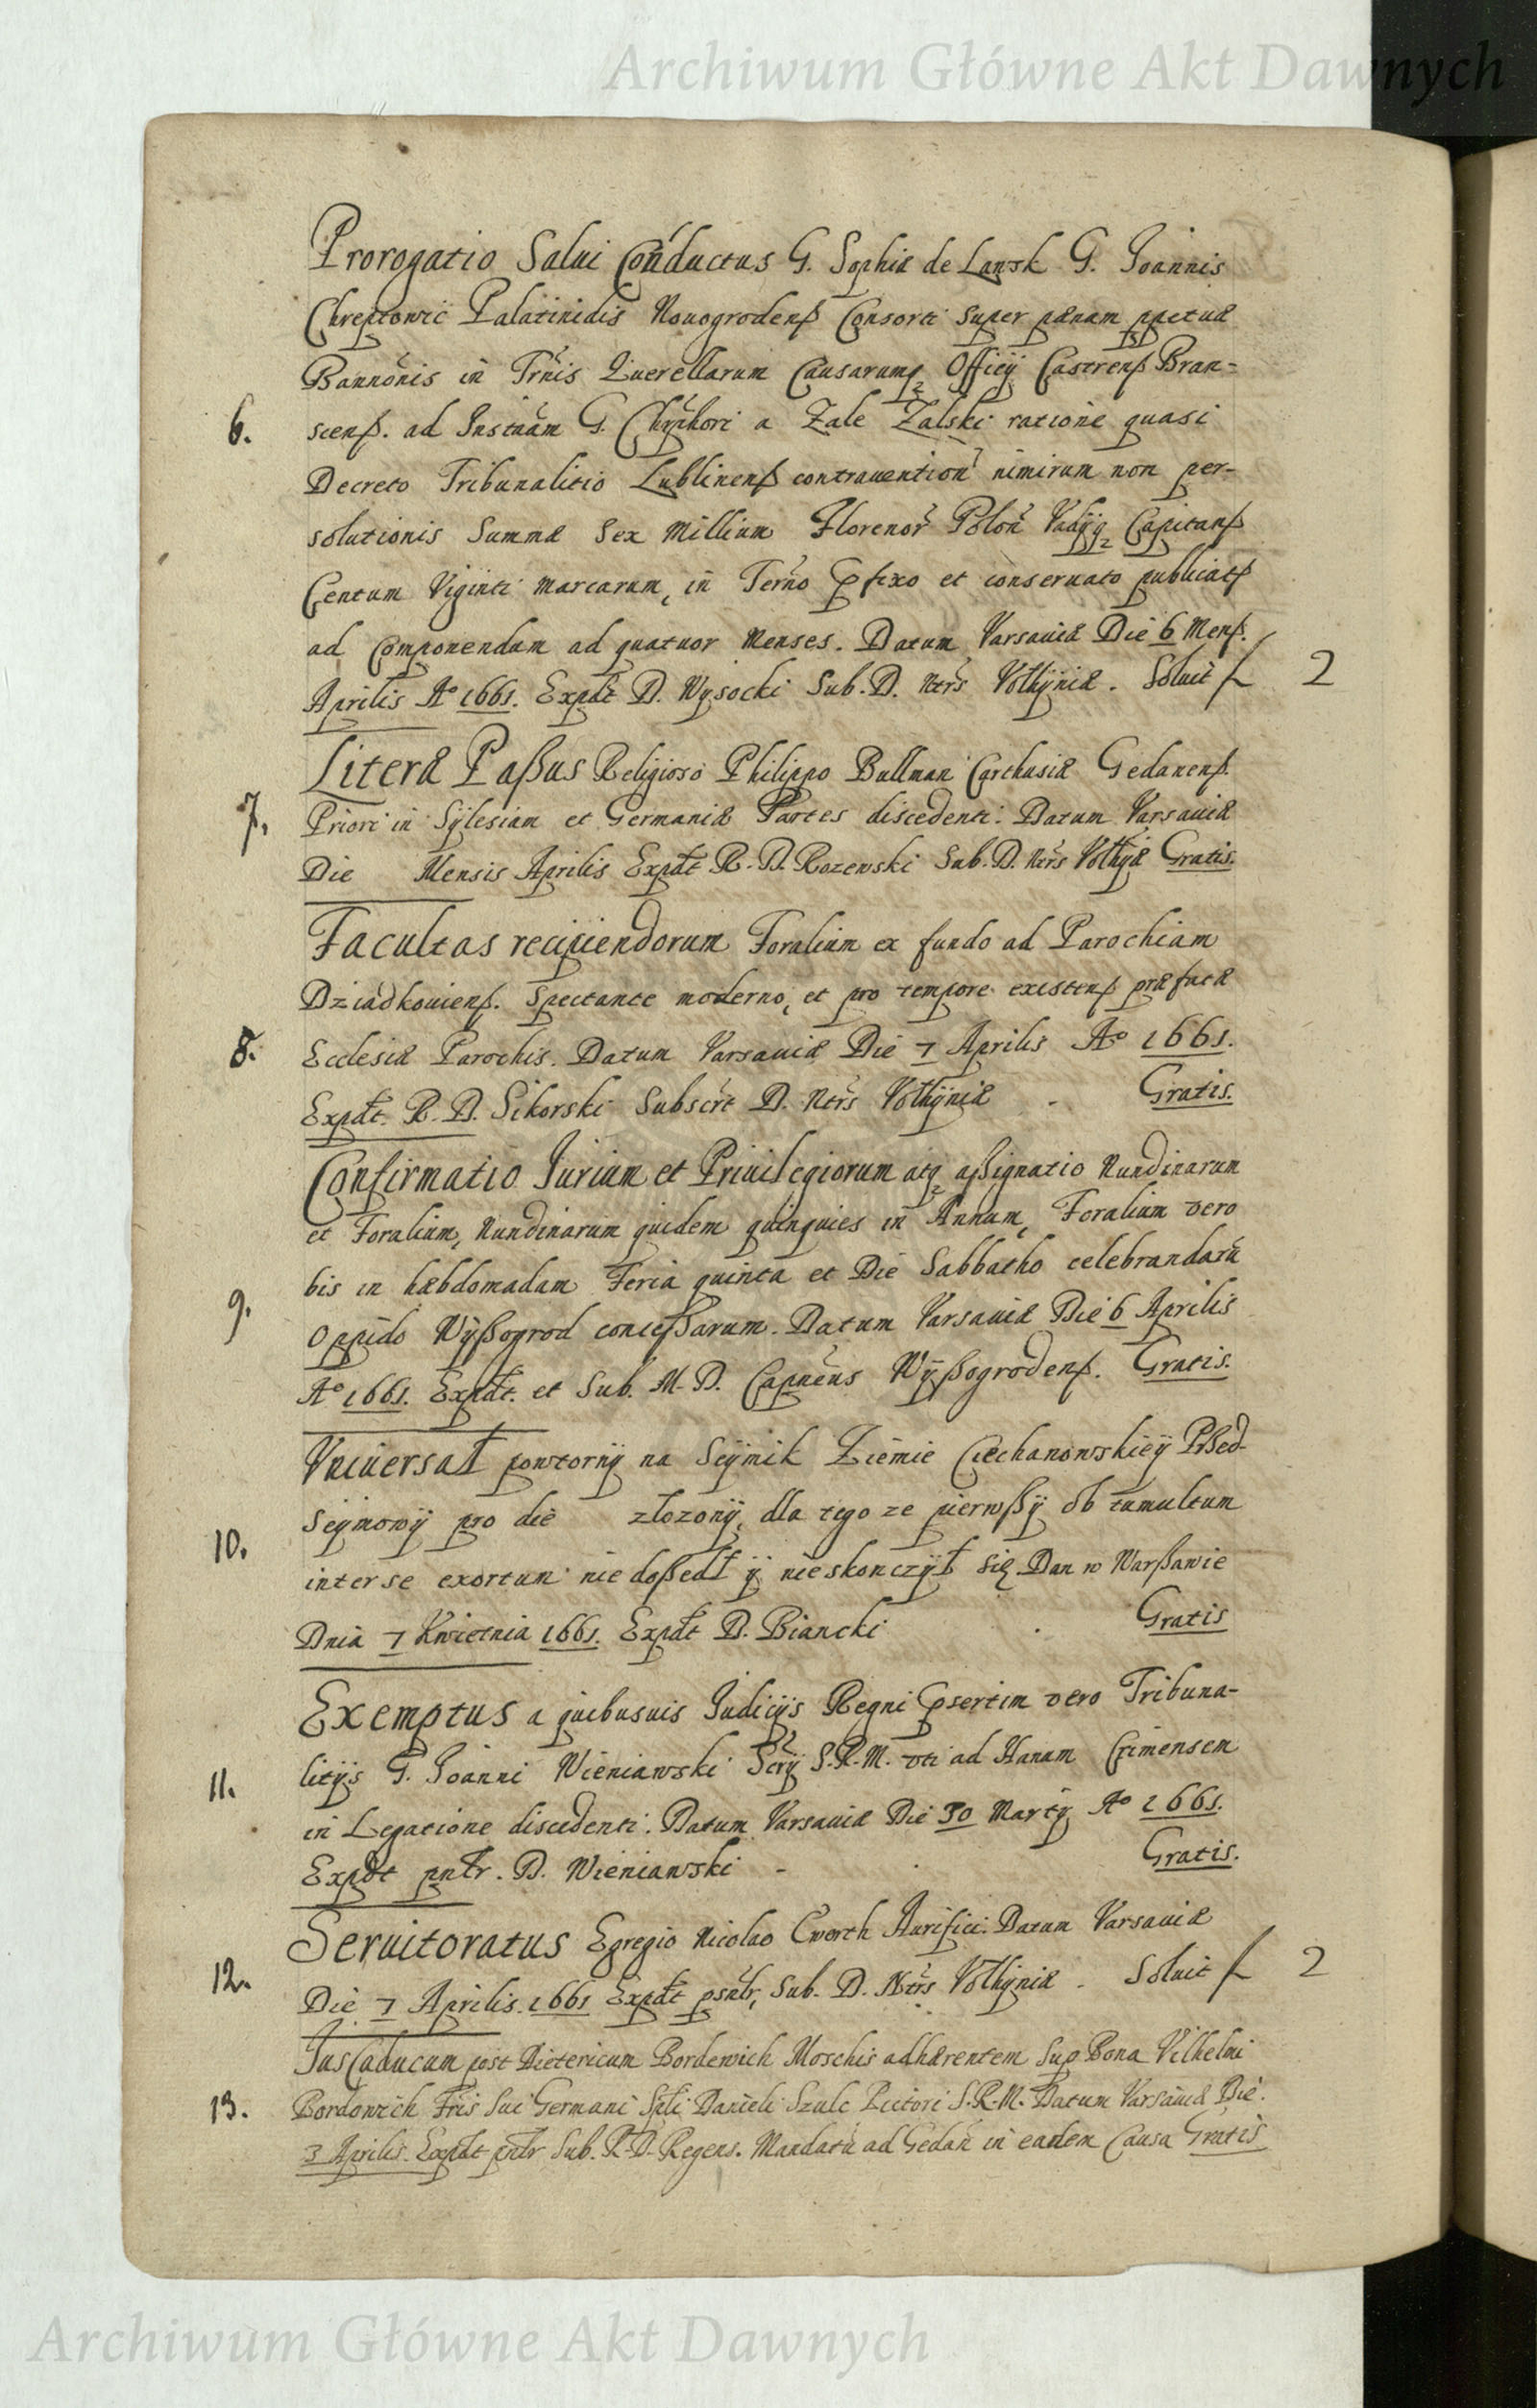 Archiwum Główne Akt Dawnych
Prorogatio Salui Conductus G. Sophiæ de Lansk G. Joannis
Chreptowic Palatinidis Nouogrodenß Consorti super pænam ppetuæ
Bannōnis in Trnis Querellarum Causarumq Officij Castrenß Bran-
6. scenß. ad Instnām G. Chrphori a Zale Zalski ratione quasi
Decreto Tribunalitio Lublinenß contrauention nimirum non per-
solutionis Summæ Sex Millium Florenor Polon Vadijq Capitanß
Centum Viginti Marcarum, in Terno pfixo et conseruato publicatß
ad Componendam ad quatuor Menses. Datum Varsauiæ Die 6 Menß.
Aprilis Ao 1661. Expdt D. Wysocki Sub. D. Ntrs Volhyniæ. Soluit f 2
Literæ Paßus Religioso Philippo Bullman Carthusiæ Gedanenß.
7. Priori in Sylesiam et Germaniæ Partes discedenti. Datum Varsauiæ
Die Mensis Aprilis Expdt R. D. Rozewski Sub. D. Ntrs Volhyæ Gratis.
Facultas recipiendorum Foralium ex fundo ad Parochiam
Dziadkouienß. Spectante moderno, et pro tempore existenß præfatæ
8. Ecclesiæ Parochis. Datum Varsauiæ Die 7 Aprilis Ao 1661.
Expdt. R. D. Sikorski Subscrt D. Ntrs Volhyniæ - Gratis.
Confirmatio Jurium et Priuilegiorum atq aßignatio Nundinarum
et Foralium, Nundinarum quidem quinquies in Annum, Foralium vero
bis in hæbdomadam Feria quinta et Die Sabbatho celebrandarū
9. Oppido Wyßogrod conceßarum. Datum Varsauiæ Die 6 Aprilis
Ao 1661. Expdt. et Sub. M. D. Capnēus Wyßogrodenß. Gratis.
Vniuersał powtorny na Seymik Ziemie Ciechanowskiey Prßed-
Seymowy pro die złozony, dla tego ze pierwßy ob tumultum
10. inter se exortum nie doßedł y nieskonczył się Dan w Warßawie
Dnia 7 Kwietnia 1661. Expdt D. Biancki . Gratis
Exemptus a quibusuis Judicijs Regni psertim vero Tribuna-
11. litijs G. Joanni Wieniawski Scrij S.R.M. vti ad Hanam Crimensem
in Legatione discedenti. Datum Varsauiæ Die 30 Martij Ao 1661.
Expdt pntr. D. Wieniawski - . Gratis.
Seruitoratus Egregio Nicolao Cworth Aurifici. Datum Varsauiæ
12. Die 7 Aprilis. 1661 Expdt psntr, Sub. D. Ntrs Volhyniæ - Soluit f 2
Jus Caducum post Dietericum Bordewich Moschis adhærentem Sup Bona Vilhelmi
13. Bordowich Fris Sui Germani Sptli Danieli Szulc Pictori S.R.M. Datum Varsauiæ Die.
3 Aprilis. Expdt pntr Sub. R. D. Regens. Mandatū ad Gedan in eadem Causa Gratis
Archiwum Główne Akt Dawnych